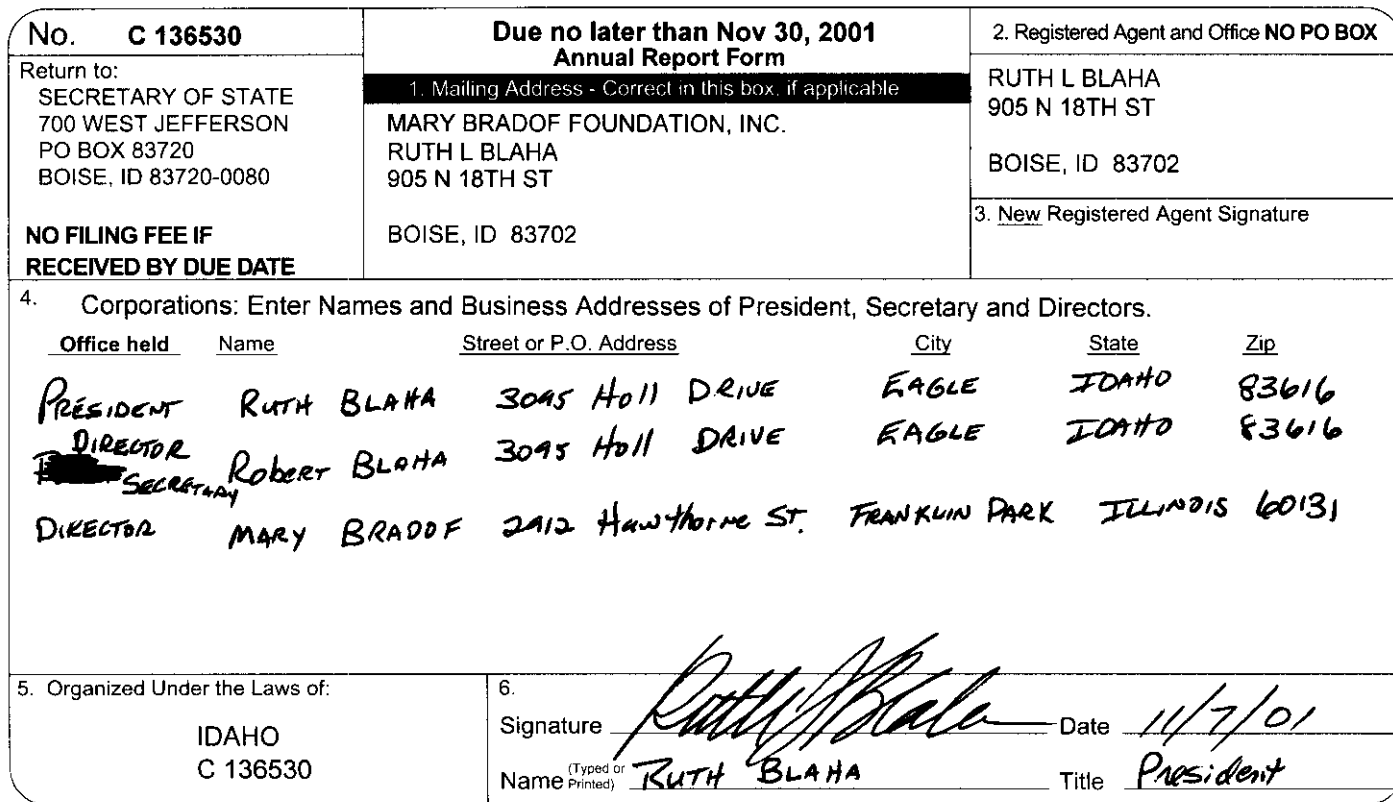 No. C 136530
Return to:
SECRETARY OF STATE
700 WEST JEFFERSON
PO BOX 83720
BOISE, ID 83720-0080
NO FILING FEE IF
RECEIVED BY DUE DATE
Due no later than Nov 30, 2001
Annual Report Form
1. Mailing Address - Correct in this box, if applicable
MARY BRADOF FOUNDATION, INC.
RUTH L BLAHA
905 N 18TH ST
BOISE, ID 83702
2. Registered Agent and Office NO PO BOX
RUTH L BLAHA
905 N 18TH ST
BOISE, ID 83702
3. New Registered Agent Signature
4. Corporations: Enter Names and Business Addresses of President, Secretary and Directors.
Office held Name Street or P.O. Address City State Zip
PRESIDENT RUTH BLAHA 3095 Holl DRIVE EAGLE IDAHO 83616
DIRECTOR
SECRETARY Robert BLAHA 3095 Holl DRIVE EAGLE IDAHO 83616
DIRECTOR MARY BRADOF 2912 Hawthorne ST. FRANKLIN PARK ILLINOIS 60131
5. Organized Under the Laws of:
IDAHO
C 136530
6.
Signature Ruth L Blaha Date 11/7/01
Name (Typed or Printed) RUTH BLAHA Title President